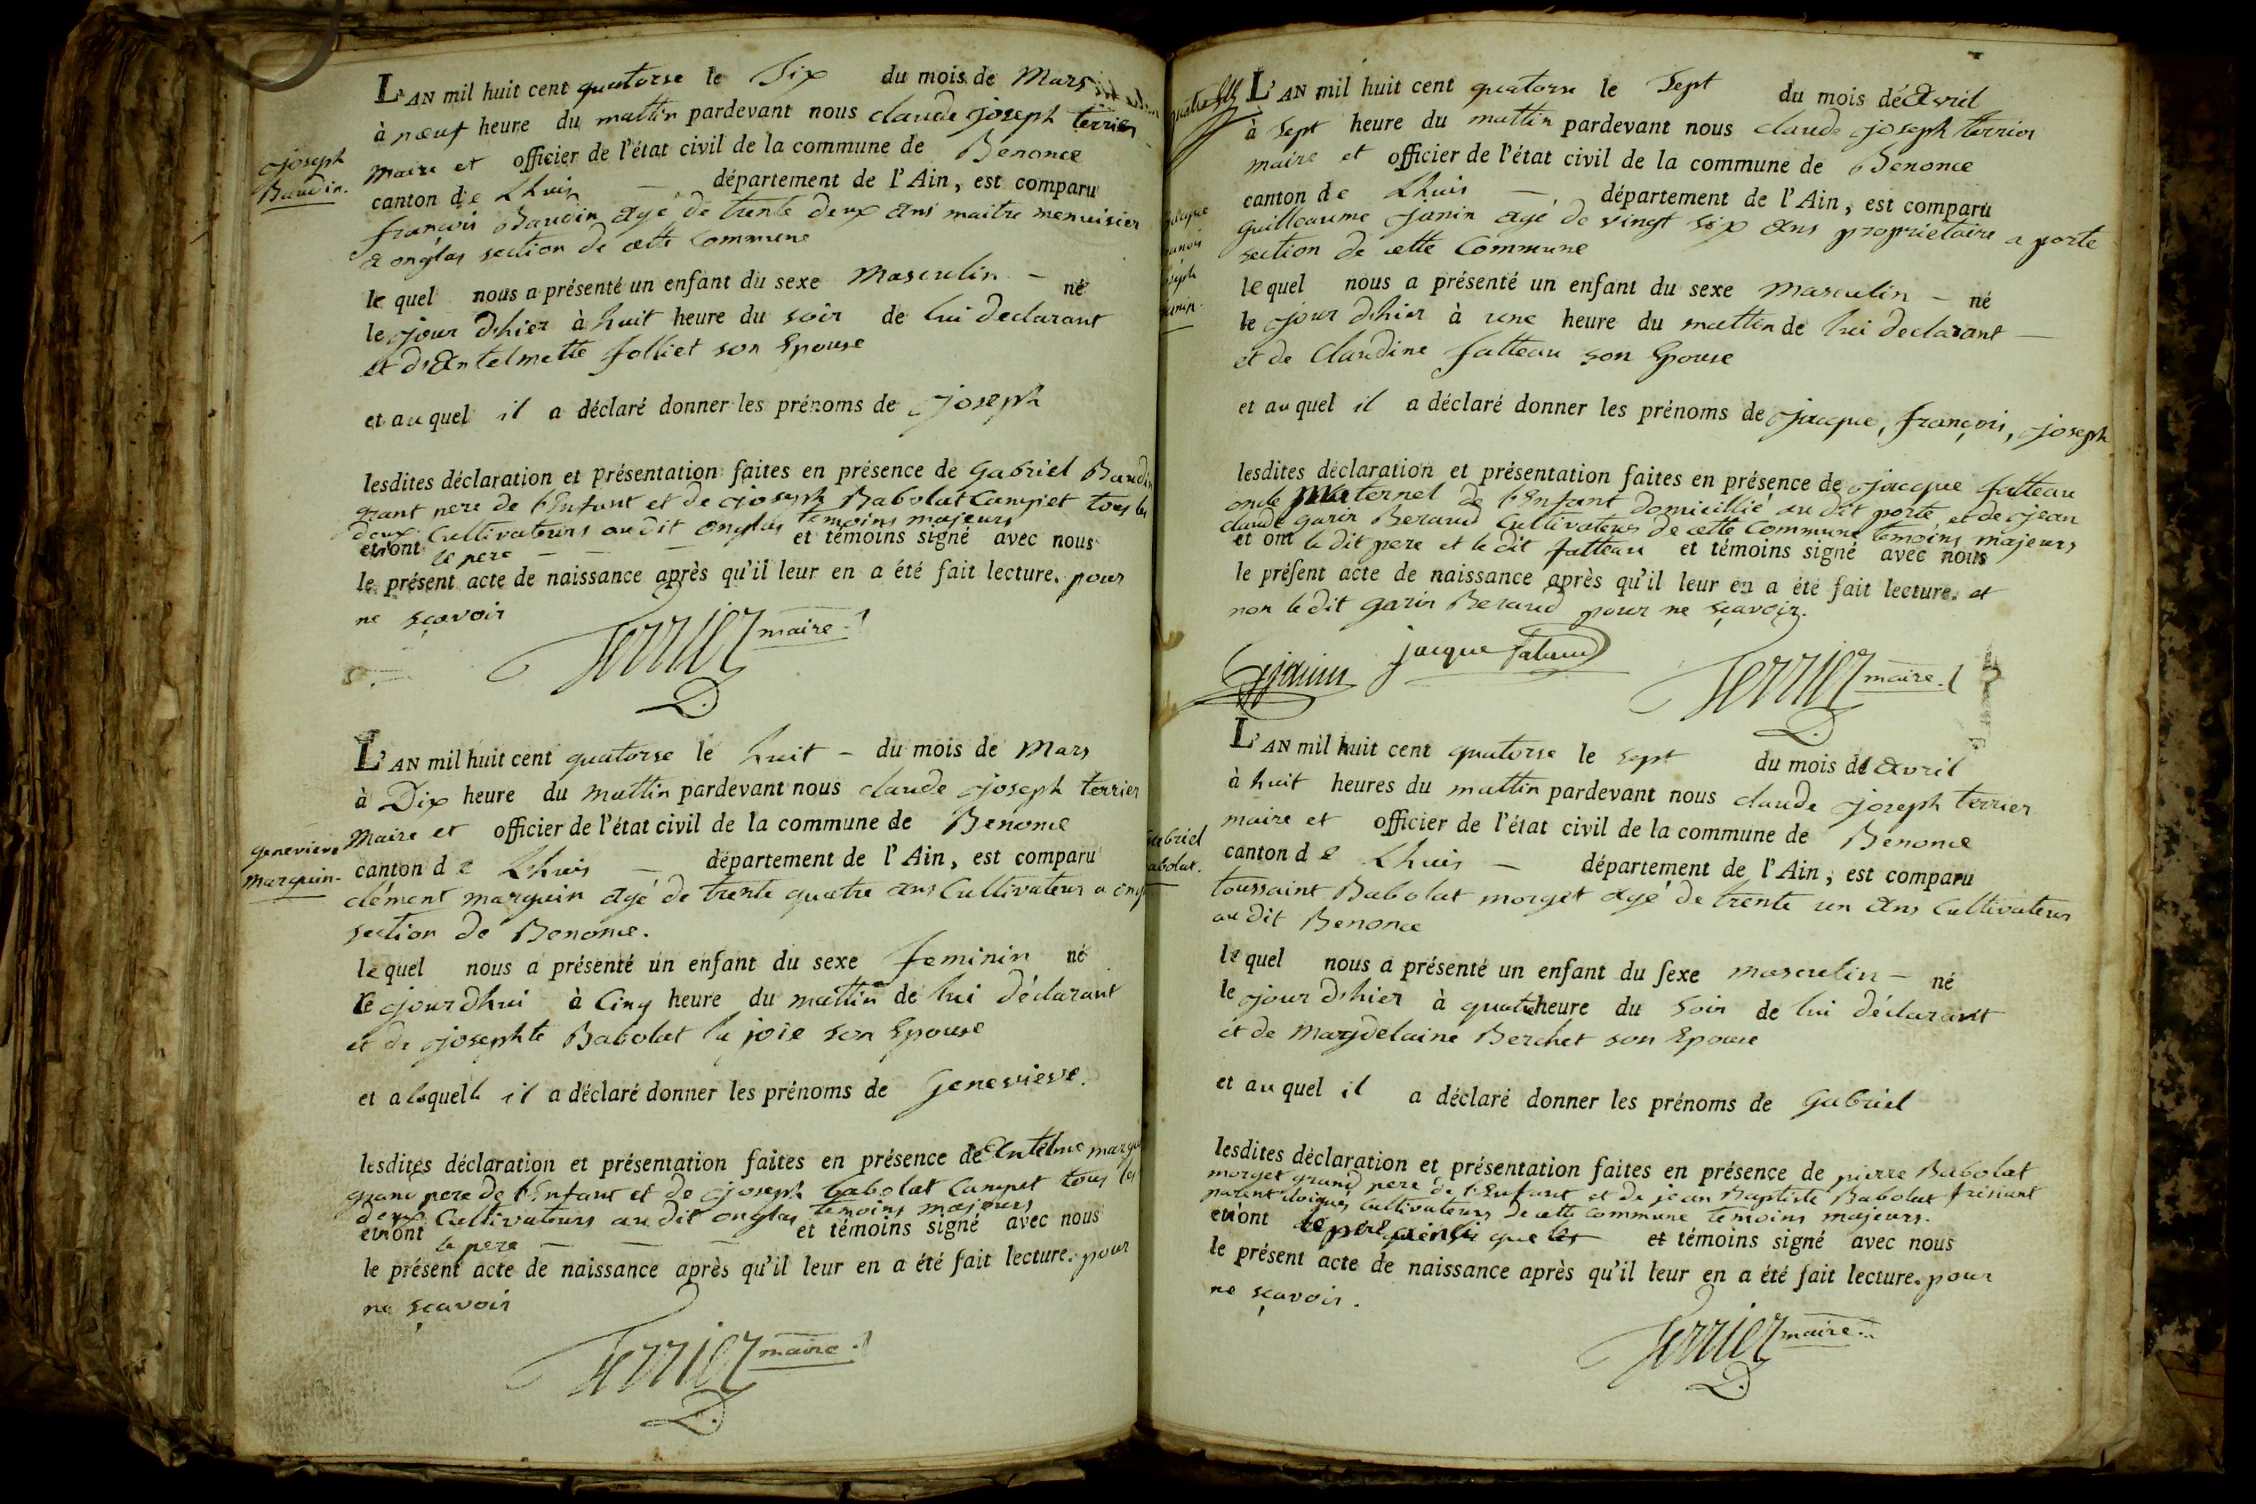 L'AN mil huit cent quatorse le Six du mois de Mars
à nœuf heure du mattin pardevant nous claude joseph terrier
maire et officier de l'état civil de la commune de Benonce
joseph
Baudin.
canton de Lhuis — département de l'Ain, est comparu
françois Baudin agé de trente deux ans maitre menuisier
a onglas section de cette Commune
le quel nous a présenté un enfant du sexe Masculin — né
le jour d'hier à huit heure du soir de lui declarant
et d'Antelmette folliet son Epouse
et au quel il a déclaré donner les prénoms de joseph
lesdites déclaration et présentation faites en présence de Gabriel Baudin
grant pere de l'Enfant et de joseph Babolat Campet tous les
deux Cultivateurs au dit onglas témoins majeurs
et n'ont le pere — — — et témoins signé avec nous
le présent acte de naissance après qu'il leur en a été fait lecture. pour
ne sçavoir
Terrier maire
L'AN mil huit cent quatorse le huit — du mois de Mars
à Dix heure du mattin pardevant nous claude joseph terrier
Maire et officier de l'état civil de la commune de Benonce
genevieve
marquin.
canton de Lhuis — département de l'Ain, est comparu
clément marquin agé de trente quatre ans Cultivateur a
section de Benonce.
le quel nous a présenté un enfant du sexe feminin né
le jourdhui à Cinq heure du mattin de lui déclarant
et de josephte Babolat la joie son Epouse
et a laquelle il a déclaré donner les prénoms de Genevieve.
lesdites déclaration et présentation faites en présence de Antelme
grand pere de l'Enfant et de joseph babolat Campet tous les
deux Cultivateurs au dit onglas témoins majeurs
et n'ont le pere — — — et témoins signé avec nous
le présent acte de naissance après qu'il leur en a été fait lecture. pour
ne sçavoir
Terrier maire
L'AN mil huit cent quatorse le Sept du mois dé Avril
à Sept heure du mattin pardevant nous claude joseph terrier
maire et officier de l'état civil de la commune de Benonce
canton de Lhuis — département de l'Ain, est comparu
guilleaume Janin agé de vingt six ans propriétaire a porte
section de cette Commune
le quel nous a présenté un enfant du sexe masculin — né
le jour d'hier à une heure du mattin de lui declarant —
et de Claudine falteau son Epouse
et au quel il a déclaré donner les prénoms de jacque, françois, joseph
lesdites déclaration et présentation faites en présence de jacque falteau
oncle maternel de l'Enfant domicillié au dit porte, et de jean
claude garin Beraud Cultivateurs de cette Commune temoins majeurs
et ont le dit pere et le dit falteau et témoins signé avec nous
le présent acte de naissance après qu'il leur en a été fait lecture. et
non le dit garin Beraud pour ne sçavoir.
Gjanin
jacque
Terrier maire.
L'AN mil huit cent quatorse le sept du mois de avril
à huit heures du mattin pardevant nous claude joseph terrier
maire et officier de l'état civil de la commune de Benonce
canton de Lhuis — département de l'Ain, est comparu
toussaint Babolat morget agé de trente un ans Cultivateur
au dit Benonce
le quel nous a présenté un enfant du sexe masculin — né
le jour d'hier à quatre heure du soir de lui déclarant
et de Magdelaine Berchet son Epouse
et au quel il a déclaré donner les prénoms de Gabriel
lesdites déclaration et présentation faites en présence de pierre Babolat
morget grand pere de l'Enfant et de jean Baptiste Babolat
parent Cultivateurs de cette commune temoins majeurs.
et n'ont le pere ainsi que les et témoins signé avec nous
le présent acte de naissance après qu'il leur en a été fait lecture. pour
ne sçavoir.
Terrier maire